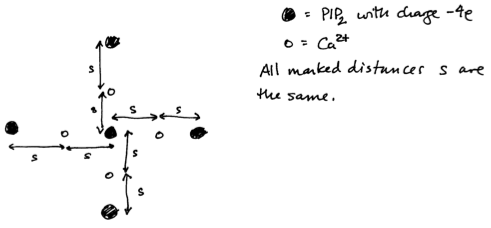 = PIP₂ with charge -4e
= Ca²⁺
All marked distances s are
the same.
s
s
s
s
s
s
s
s